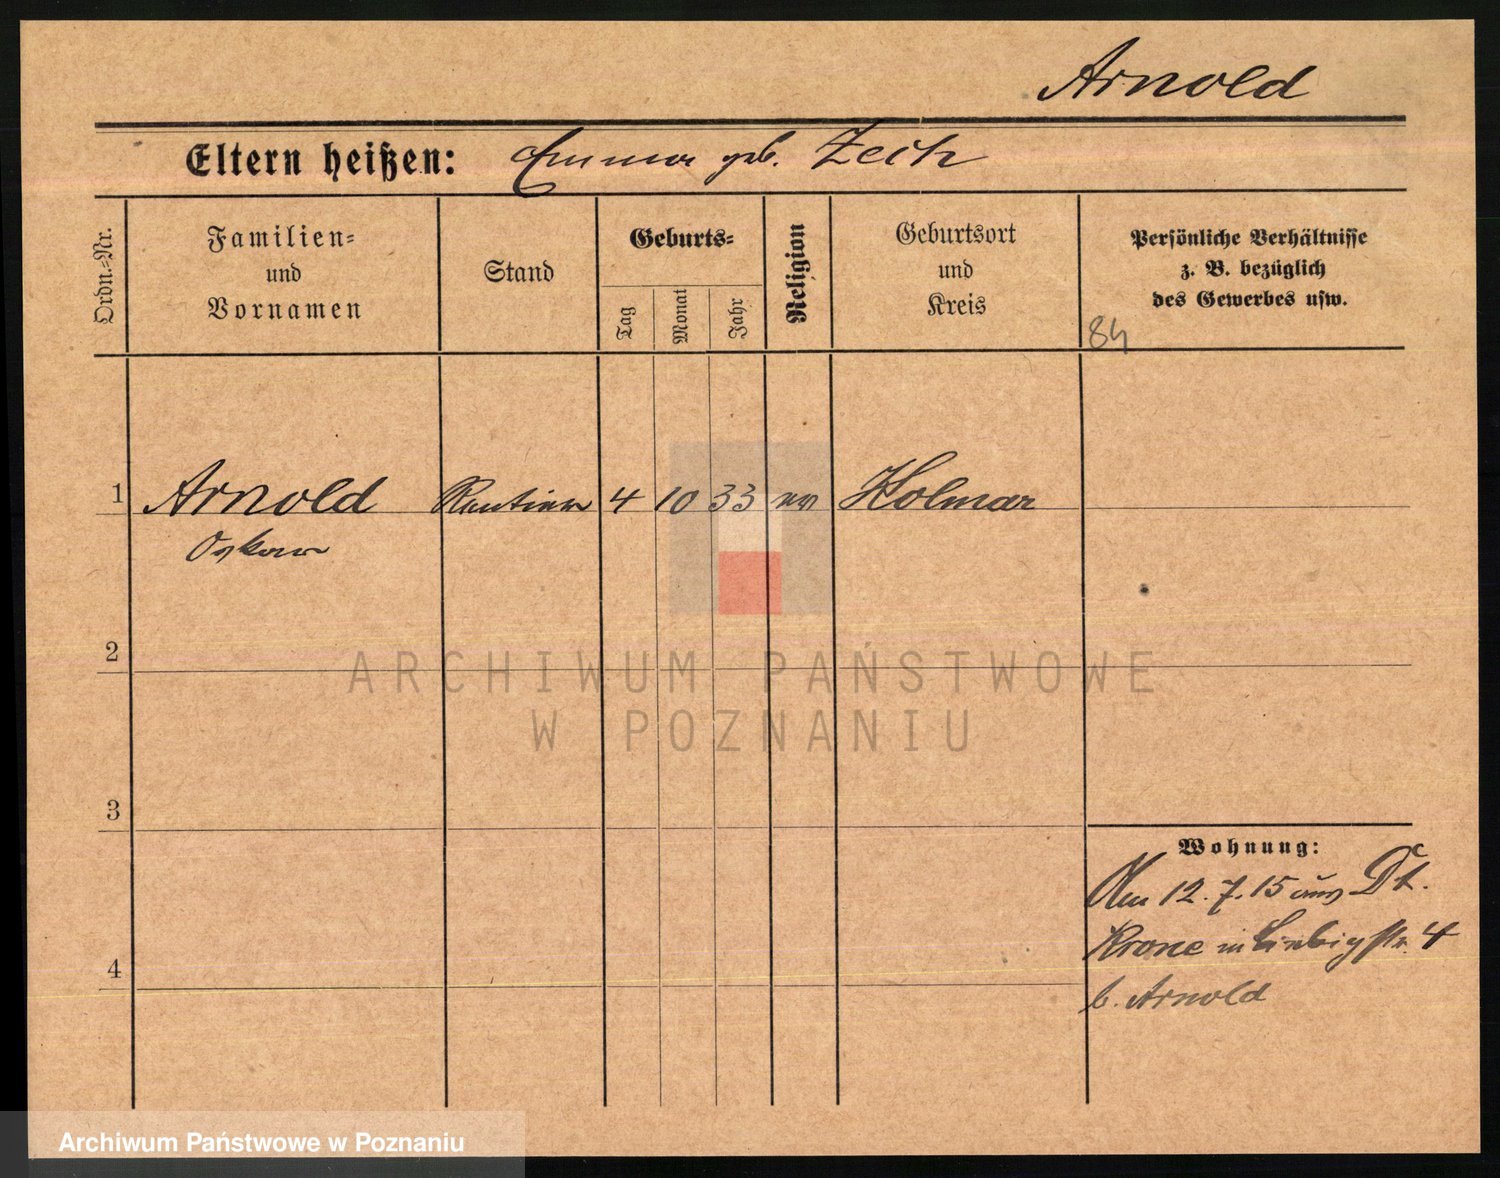 Arnold
Eltern heißen: Emma geb. Zech
Ordn.=Nr.
Familien=
und
Vornamen
Stand
Geburts=
Tag
Monat
Jahr
Religion
Geburtsort
und
Kreis
Persönliche Verhältnisse
z. B. bezüglich
des Gewerbes usw.
84
1 Arnold Rentier 4 10 33 ev Kolmar
Oskar
2
ARCHIWUM PAŃSTWOWE
W POZNANIU
3
Wohnung:
Am 12.7.15 aus Dt.
Krone in Liebigstr. 4
b. Arnold
4
Archiwum Państwowe w Poznaniu